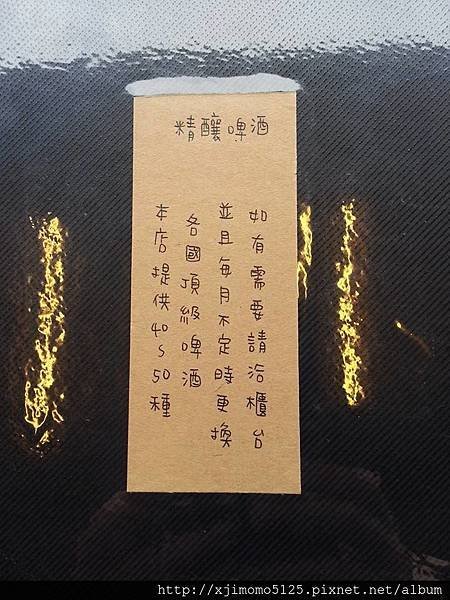 精釀啤酒
本店提供40~50種
各國頂級啤酒
並且每月不定時更換
如有需要請洽櫃台
http://xjimomo5125.pixnet.net/album